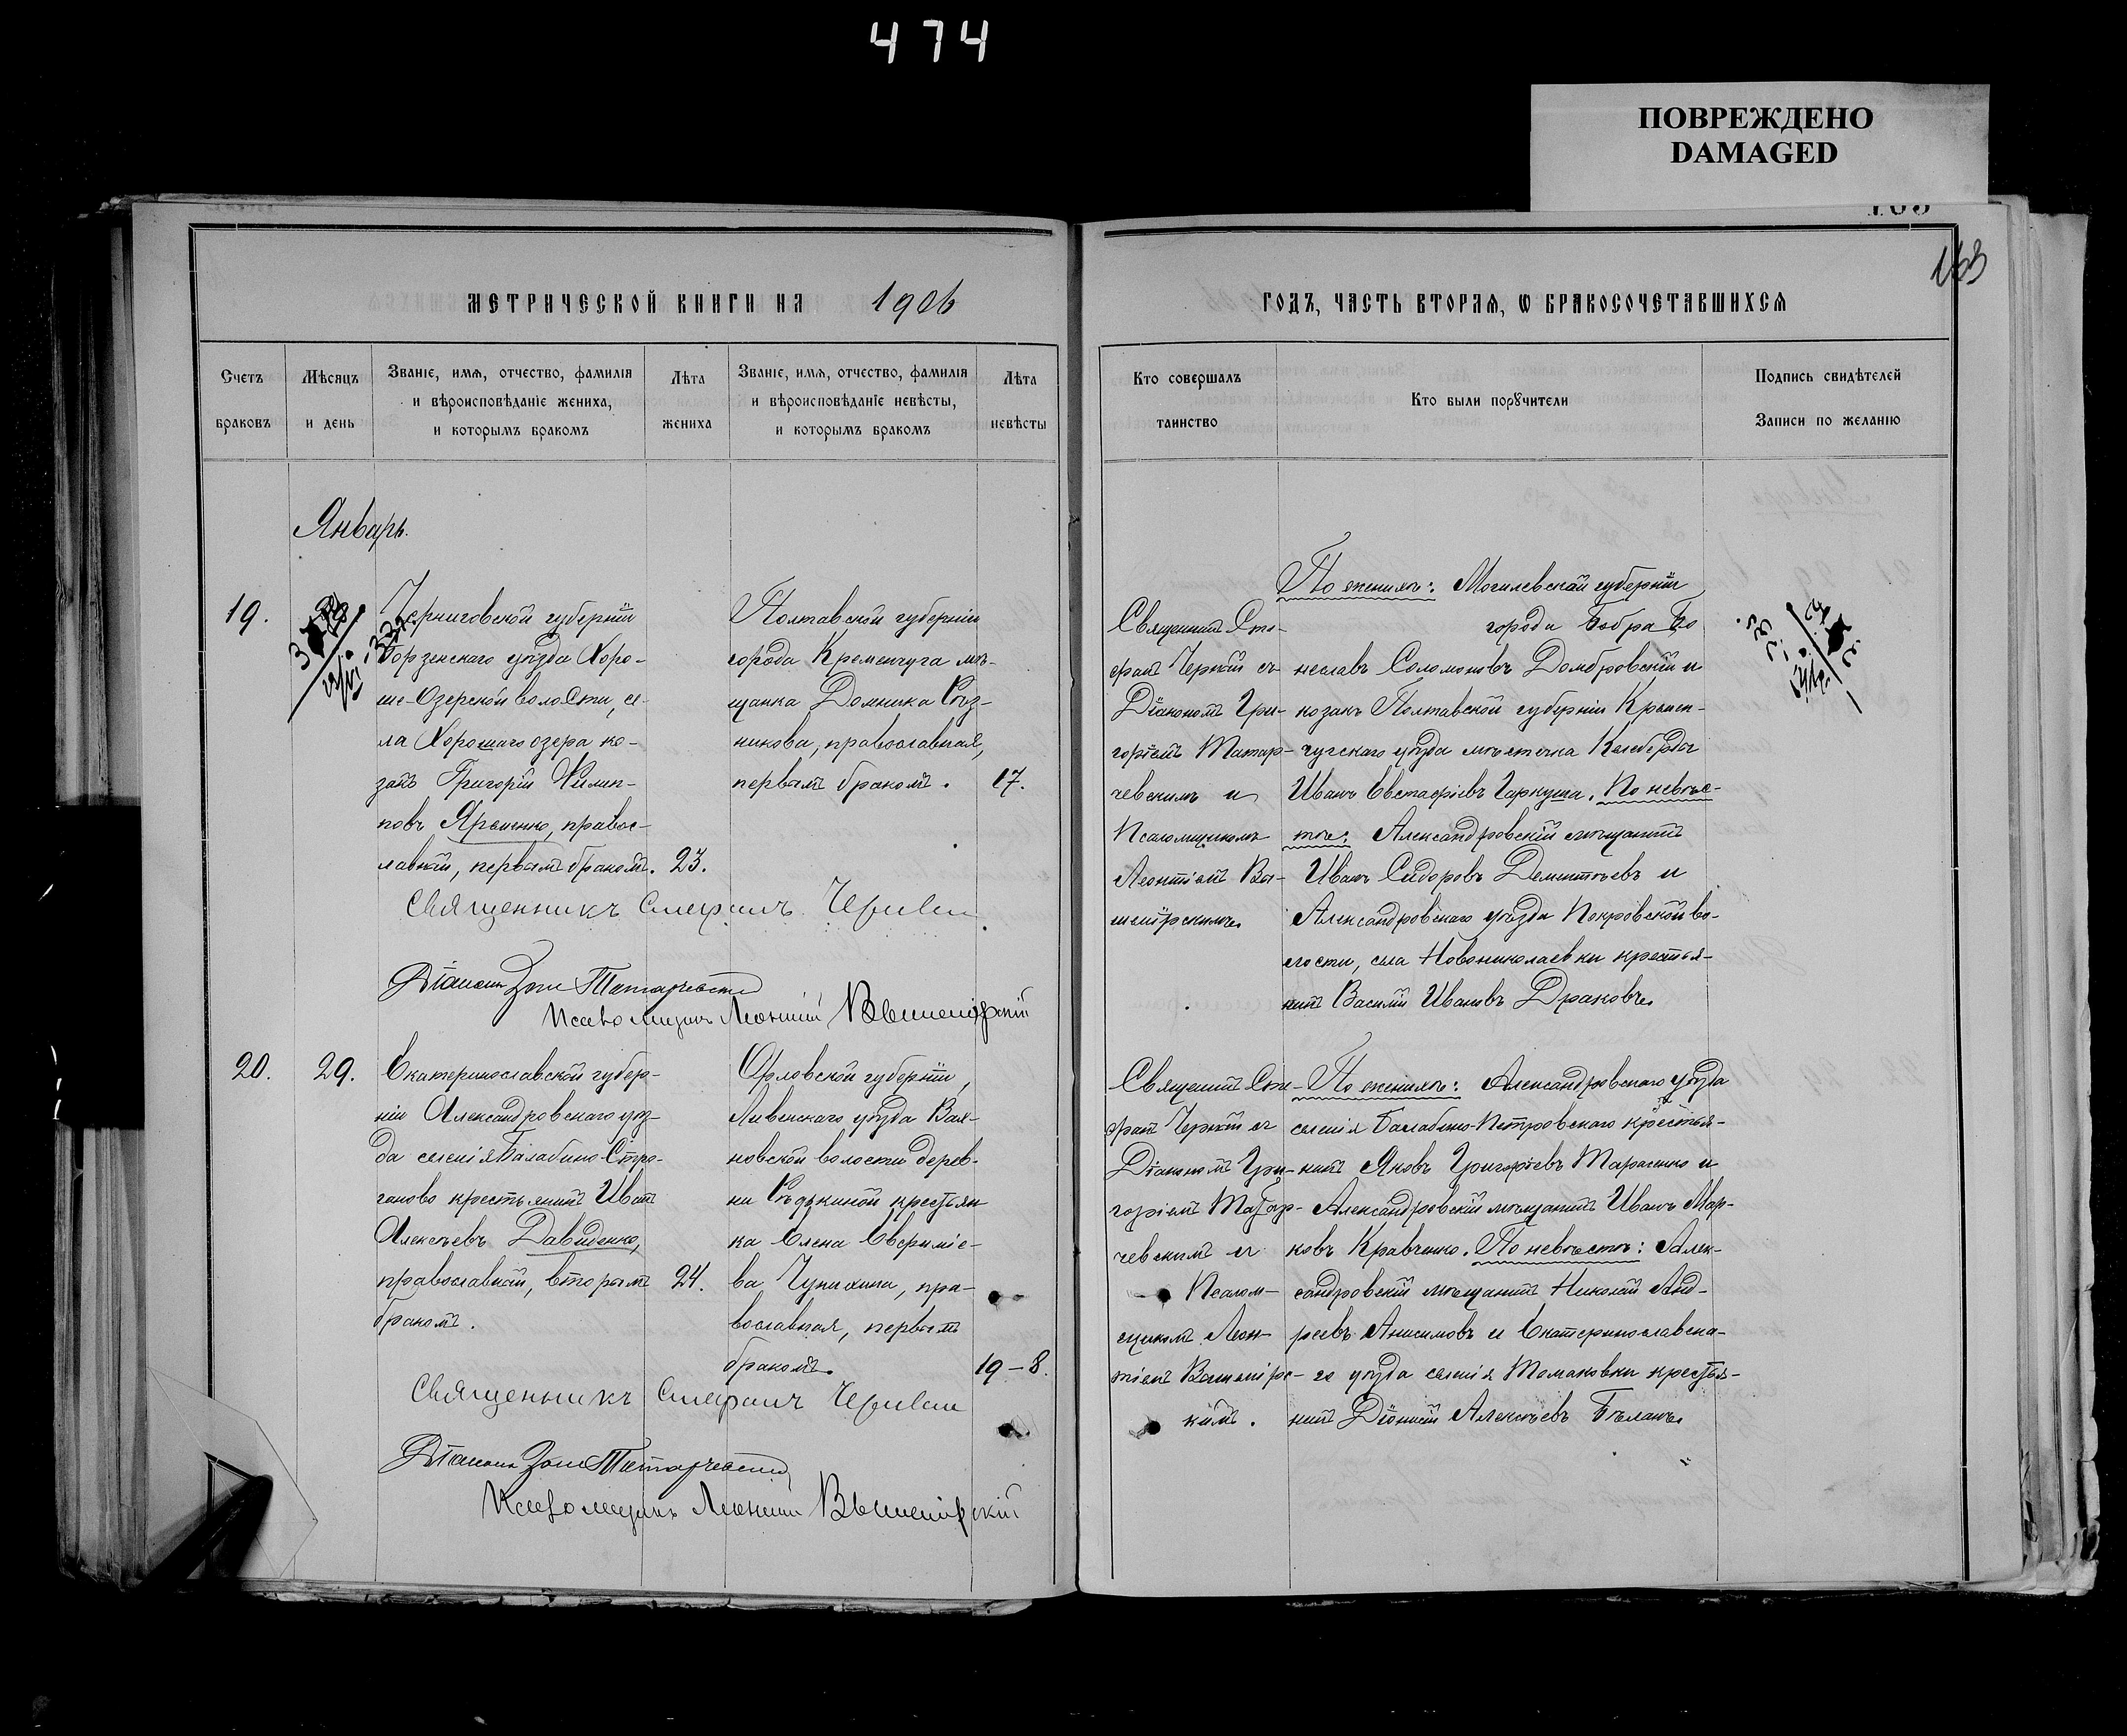 474
ПОВРЕЖДЕНО
DAMAGED
163
МЕТРИЧЕСКОЙ КНИГИ НА 1906
ГОДЪ, ЧАСТЬ ВТОРАЯ, Ѡ БРАКОСОЧЕТАВШИХСЯ
Счетъ
браковъ
Мѣсяцъ
и день
Званіе, имя, отчество, фамилія
и вѣроисповѣданіе жениха,
и которымъ бракомъ
Лѣта
жениха
Званіе, имя, отчество, фамилія
и вѣроисповѣданіе невѣсты,
и которымъ бракомъ
Лѣта
невѣсты
Кто совершалъ
таинство
Кто были порꙋчители
Подпись свидѣтелей
Записи по желанію
Январь.
19.
Черниговской губерніи
Борзенскаго уѣзда Хоро-
ше-Озерской волости, се-
ла Хорошаго озера ко-
закъ Григорій Филип-
повъ Яременко, правос-
лавный, первымъ бракомъ.
23.
Полтавской губерніи
города Кременчуга мѣ-
щанка Домника Рѣз-
никова, православная,
первымъ бракомъ.
17.
Священникъ Сте-
фанъ Черный съ
Діакономъ Гри-
горіемъ Татар-
чевскимъ и
Псаломщикомъ
Леонтіемъ Вы-
шемірскимъ
По женихѣ: Могилевской губерніи
города Бобра Бо
неславъ Соломоновъ Домбровскій и
козакъ Полтавской губерніи Кремен-
чугскаго уѣзда мѣстечка Келеберды
Иванъ Евстафіевъ Гаркуша. По невѣс-
тѣ: Александровскій мѣщанинъ
Иванъ Сидоровъ Дементьевъ и
Александровскаго уѣзда Покровской во-
лости, села Новониколаевки крестья-
нинъ Василій Ивановъ Драковъ
Священникъ Стефанъ Черный
Діаконъ Григ. Татарчевскій
Псаломщикъ Леонтій Вышемірскій
20.
29.
Екатеринославской губер-
ніи Александровскаго уѣз-
да селенія Балабино-Стро-
ганово крестьянинъ Иванъ
Алексѣевъ Давиденко,
православный, вторымъ
бракомъ.
24.
Орловской губерніи,
Ливенскаго уѣзда Вах-
новской волости дерев-
ни Рѣдькиной крестьян
ка Елена Евфиміе-
ва Чупахина, пра-
вославная, первымъ
бракомъ.
19-8.
Священникъ Сте-
фанъ Черный съ
Діакономъ Гри-
горіемъ Татар-
чевскимъ и
Псалом-
щикомъ Леон-
тіемъ Вышемірс-
кимъ.
По женихѣ: Александровскаго уѣзда
селенія Балабино-Петровскаго крестья-
нинъ Яковъ Григорьевъ Тарасенко и
Александровскій мѣщанинъ Иванъ Мар-
ковъ Кравченко. По невѣстѣ: Алек-
сандровскій мѣщанинъ Николай Анд-
реевъ Анисимовъ и Екатеринославска-
го уѣзда селенія Томаковки крестья-
нинъ Діонисій Алексѣевъ Бѣланъ
Священникъ Стефанъ Черный
Діаконъ Григ. Татарчевскій
Псаломщикъ Леонтій Вышемірскій